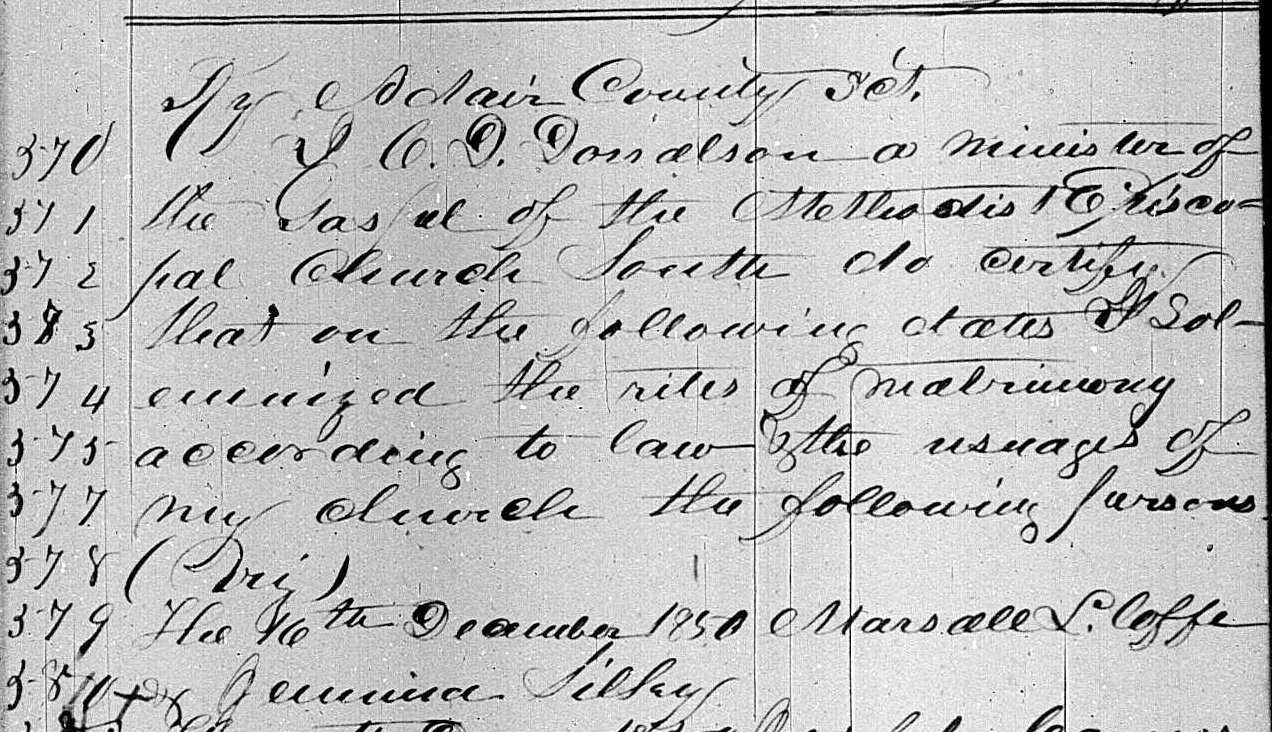 Ky Adair County Sct.
370 I C. D. Donalson a minister of
371 the Gospel of the Methodist Episco=
372 pal Church South do certify
373 that on the following dates I Sol-
374 emnized the rites of matrimony
375 according to law & the usages of
377 my church the following persons
378 (Viz)
379 The 16th December 1850 Marsall L. Coffe
380 to Jemima Silkey